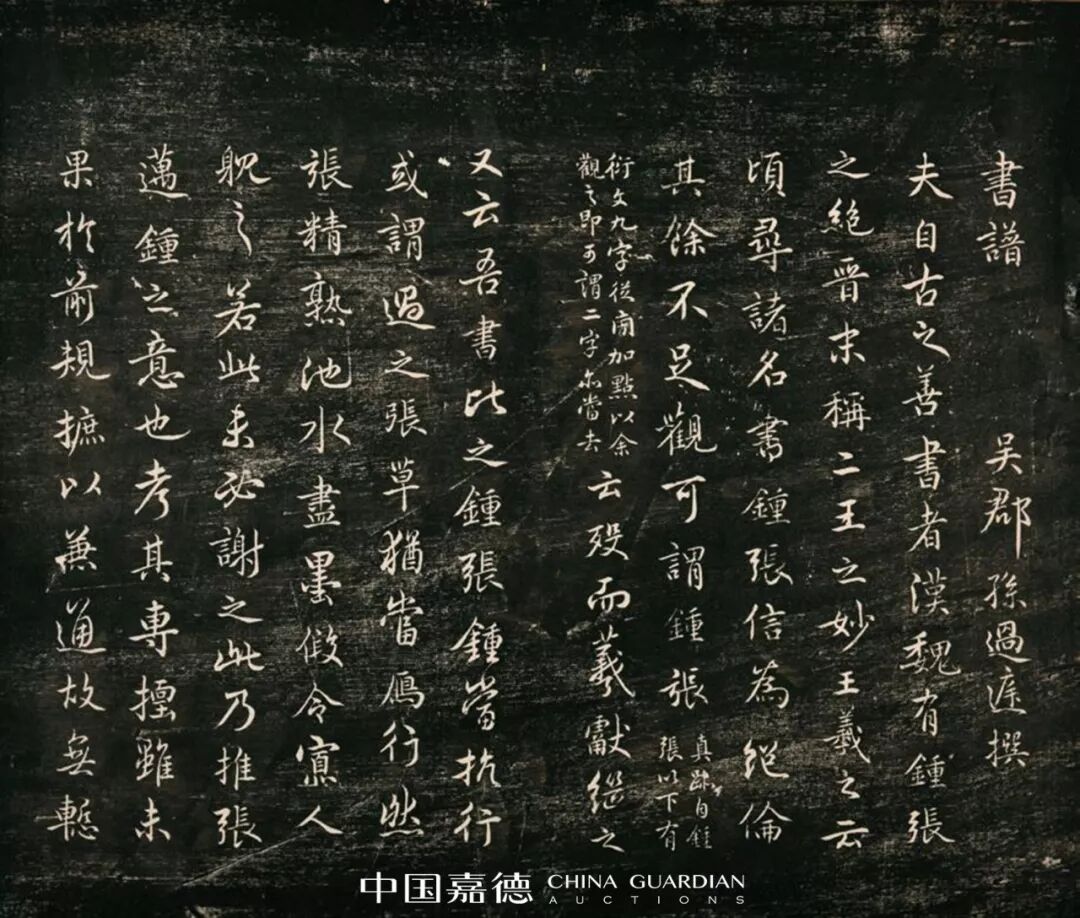 書譜
吳郡孫過庭撰
夫自古之善書者漢魏有鍾張
之絕晉末稱二王之妙王羲之云
頃尋諸名書鍾張信為絕倫
其餘不足觀可謂鍾張
真跡自鍾
張以下有
衍文九字從旁加點以余
觀之即可謂二字亦當去
云歿而羲獻繼之
又云吾書比之鍾張鍾當抗行
或謂過之張草猶當鴈行然
張精熟池水盡墨假令寡人
躭之若此未必謝之此乃推張
邁鍾之意也考其專擅雖未
果於前規摭以兼通故無慙
中国嘉德 CHINA GUARDIAN
AUCTIONS